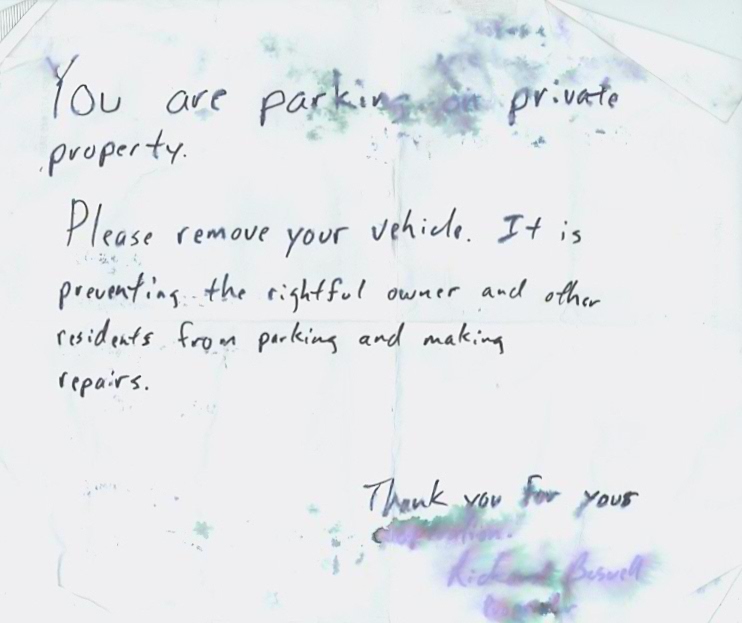 You are parking on private
property.
Please remove your vehicle. It is
preventing the rightful owner and other
residents from parking and making
repairs.
Thank you for your
cooperation.
Boswell